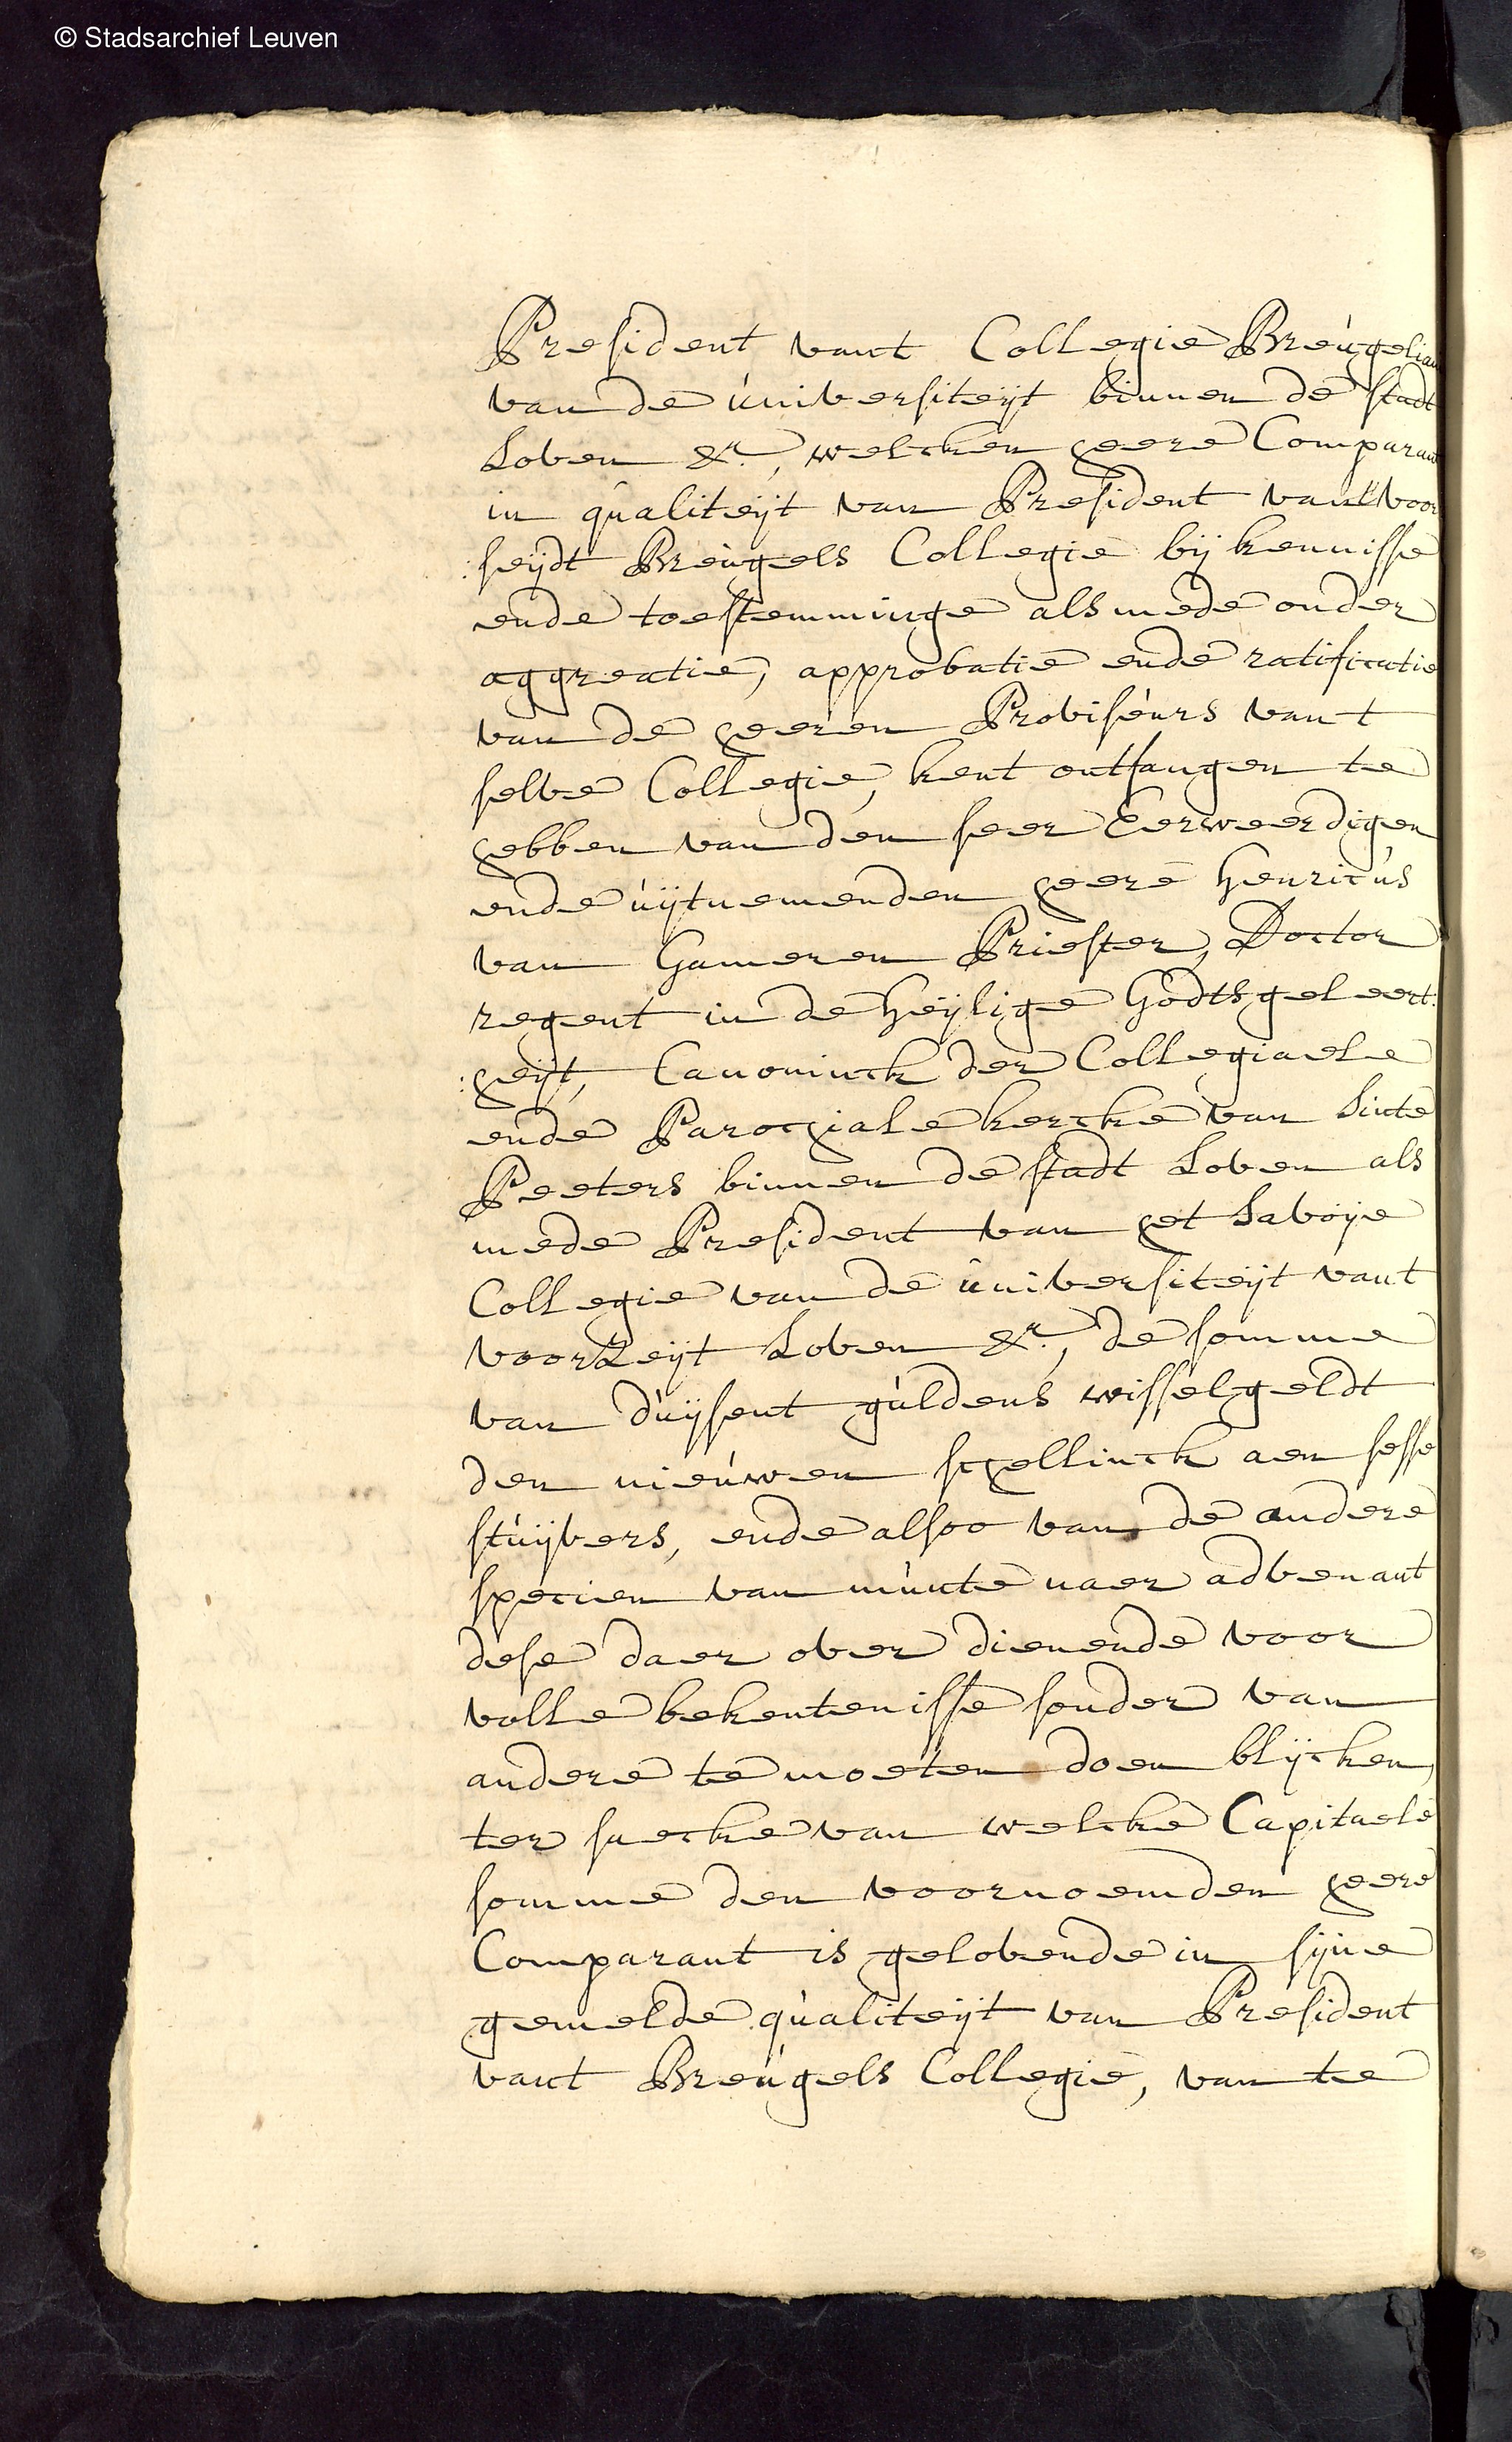 © Stadsarchief Leuven
President vant Collegie Breugelian
van de universiteijt binnen de stadt
Loven &a., welcken heere Comparant
in qualiteijt van President vant voor
:seijdt Breugels Collegie bij kennisse
ende toestemminge als mede onder
aggreatie, approbatie ende ratificatie
van de heeren Proviseurs vant
selve Collegie, kent ontfangen te
hebben van den seer Eerweerdigen
ende uijtnemenden heere Henricus
van Gameren Priester, Doctor
regent in de heijlige Godtsgeleert:
:heijt, Canoninck der Collegiaele
ende Parochiale kercke van Sinte
Peeters binnen de stadt Loven als
mede President van het Savoije
Collegie van de universiteijt vant
voorseijt Loven &a., de somme
van duijsent guldens wisselgeldt
den nieuwen schellinck aen sesse
stuijvers, ende alsoo van de andere
specien van munte naer advenant
dese daer over dienende voor
volle bekentenisse sonder van
andere te moeten doen blijcken,
ter saecke van welcke Capitaele
somme den voornoemden heere
Comparant is gelovende in sijne
gemelde qualiteijt van President
vant Breugels Collegie, van te